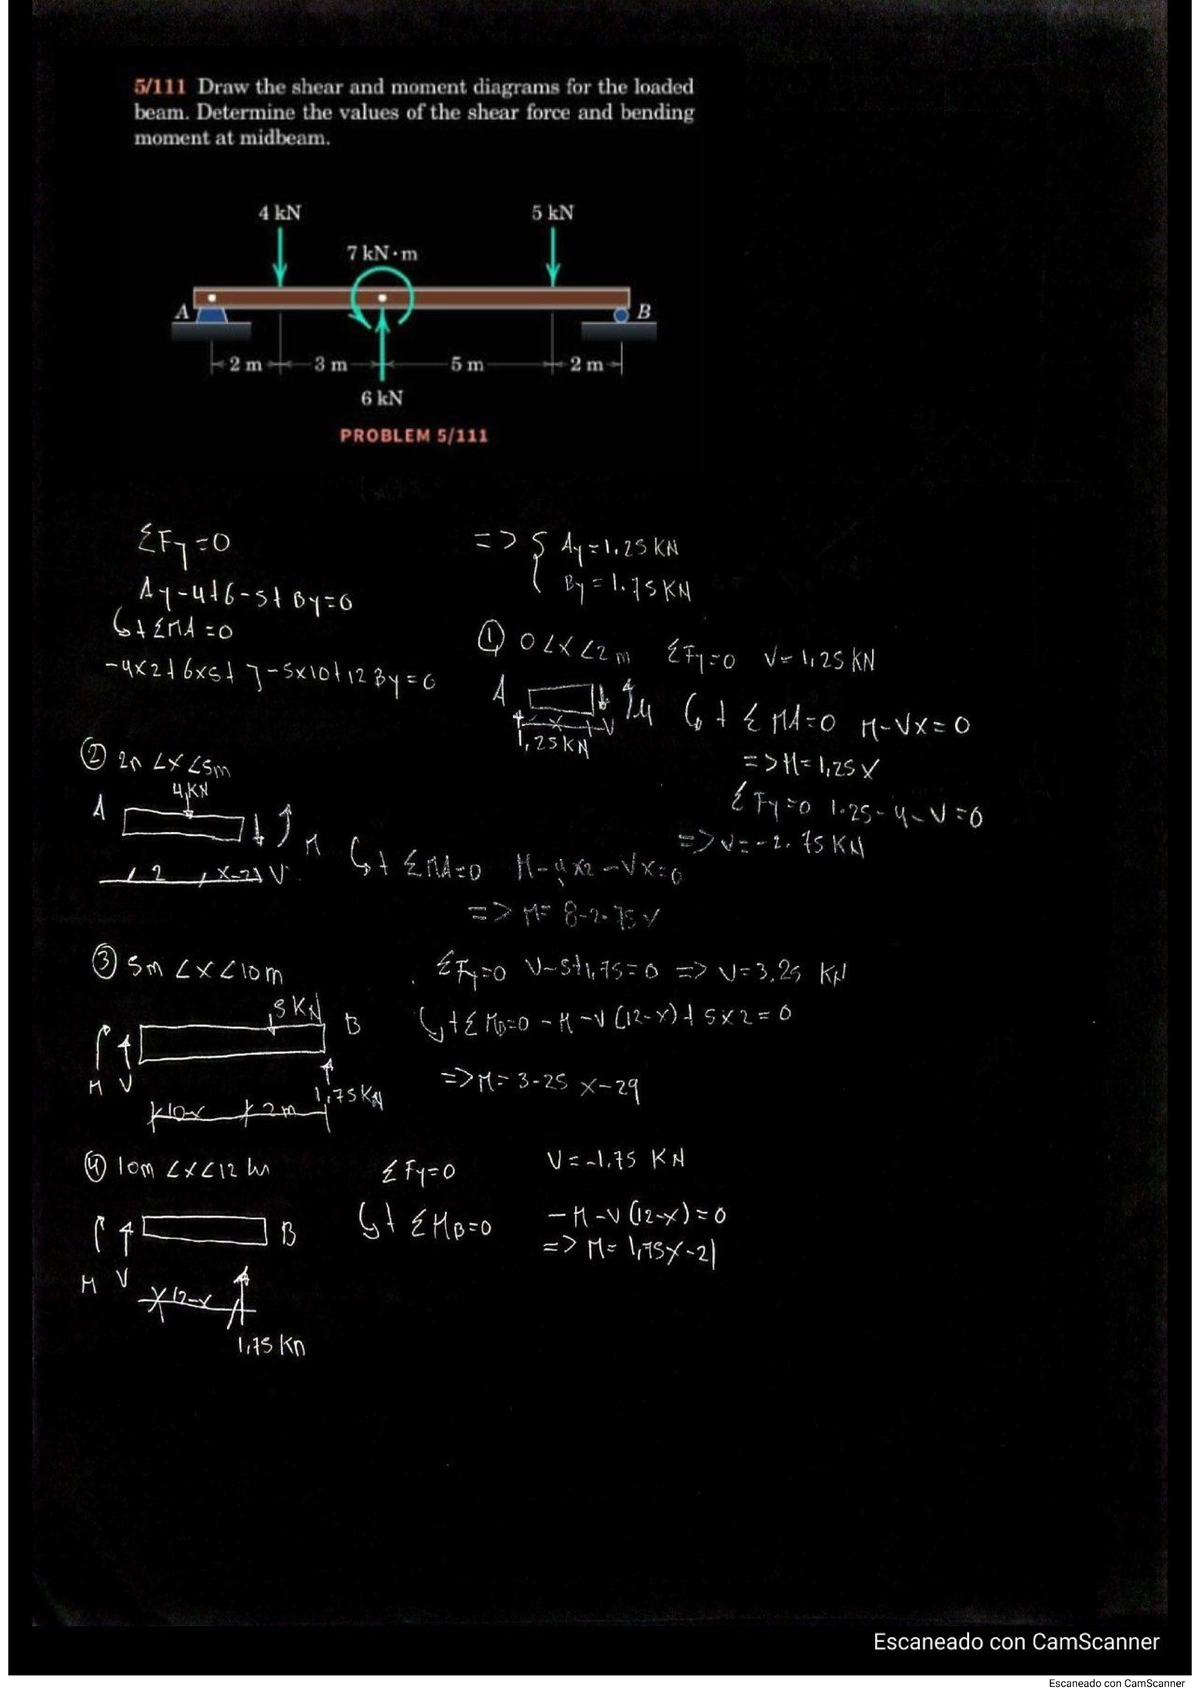 5/111 Draw the shear and moment diagrams for the loaded
beam. Determine the values of the shear force and bending
moment at midbeam.
4 kN
5 kN
7 kN·m
A
B
2 m
3 m
5 m
2 m
6 kN
PROBLEM 5/111
ΣFy=0
Ay-4+6-5+By=0
↺+ΣMA=0
-4x2+6x5+7-5x10+12By=0
=> { Ay=1.25 KN
By=1.75 KN
① 0<x<2m ΣFy=0 V=1,25 KN
A
M
x
V
1,25 KN
↺+ΣMA=0 M-Vx=0
=>M=1,25x
② 2m<x<5m
4KN
A
M
2
x-2
V
ΣFy=0 1.25-4-V=0
=>V=-2.75 KN
↺+ΣMA=0 M-4x2-Vx=0
=> M= 8-2.75x
③ 5m<x<10m
5KN
B
M V
1,75KN
10-x
2m
ΣFy=0 V-5+1,75=0 => V=3,25 KN
↺+ΣMB=0 -M-V(12-x)+5x2=0
=>M= 3-25 x-29
④ 10m<x<12m
B
M V
12-x
1,75 Kn
ΣFy=0 V=-1,75 KN
↺+ΣMB=0 -M-V(12-x)=0
=> M= 1,75x-21
Escaneado con CamScanner
Escaneado con CamScanner